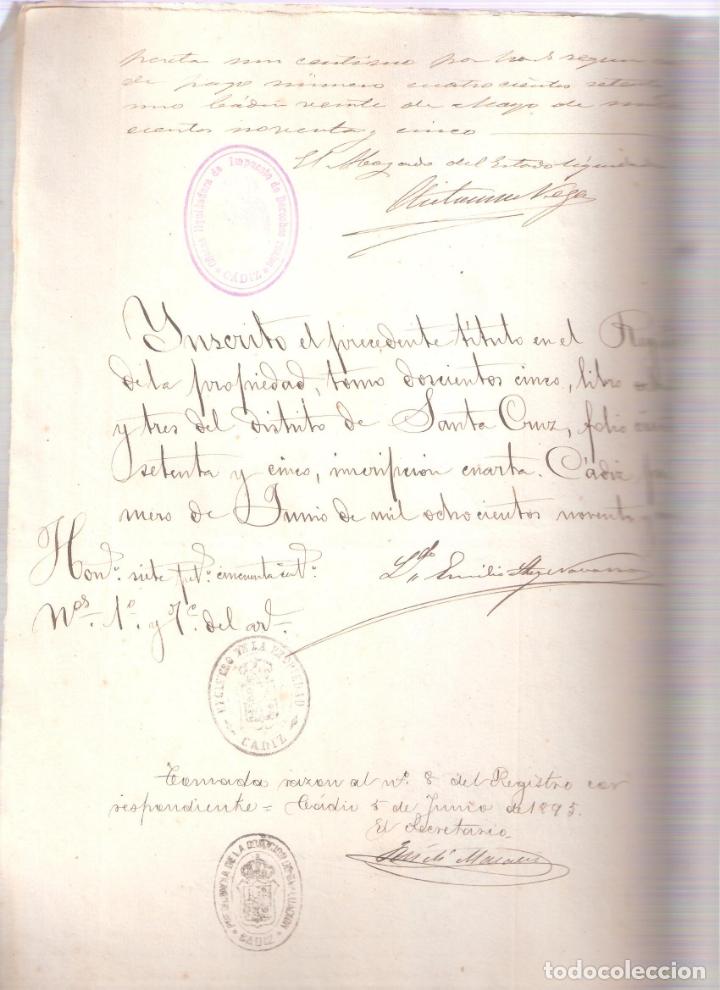 peseta un centimo por hos segun
de pago número cuatrocientos setenta
uno Cádiz veinte de Mayo de
cientos noventa y cinco
El Abogado del Estado liquidador
Oficina liquidadora de Impuesto de Derechos reales
CÁDIZ
Ynscrito el precedente título en el
de la propiedad, tomo doscientos cinco, libro
y tres del distrito de Santa Cruz, folio
setenta y cinco, inscripcion cuarta. Cádiz
mero de Junio de mil ochocientos noventa
Honos. siete ptas. cincuenta cnts.
Ldo. Emilio
Nos. 1º. y 7º. del ar.
REGISTRO DE LA PROPIEDAD
CADIZ
Tomada razon al nº. 8 del Registro cor
respondiente = Cádiz 5 de Junio de 1895.
El Secretario
CADIZ
todocoleccion